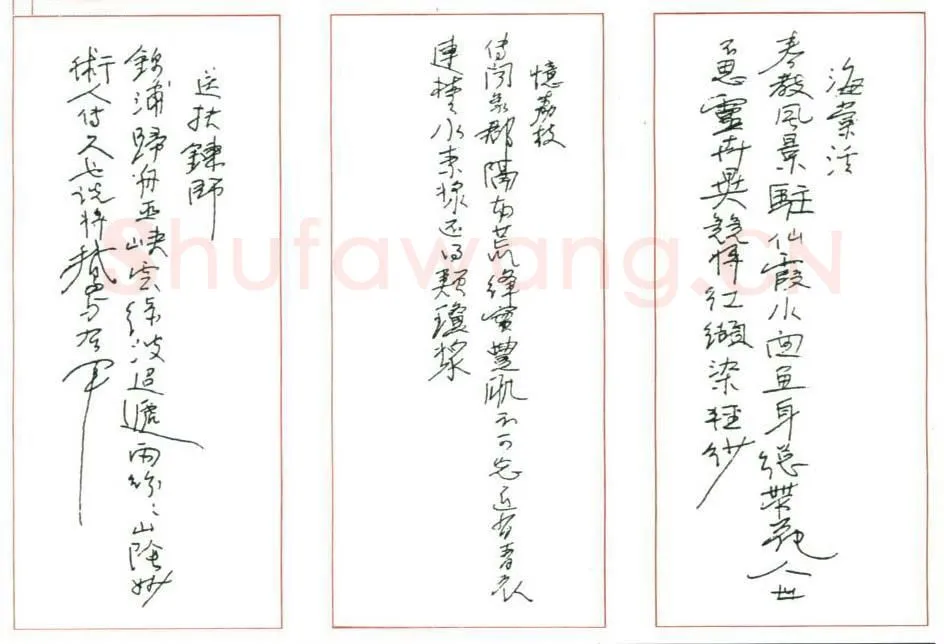 海棠溪
春教風景駐仙霞水面魚身總帶花人世
不思靈卉異競將紅纈染輕紗
憶荔枝
传闻象郡隔南荒絳實豐肌不可忘近有青衣
連楚水素漿还得類瓊漿
送扶鍊師
錦浦歸舟巫峡雲綠波迢遞雨紛々山陰妙
術人传久也说将鵝与右軍
Shufawang.CN